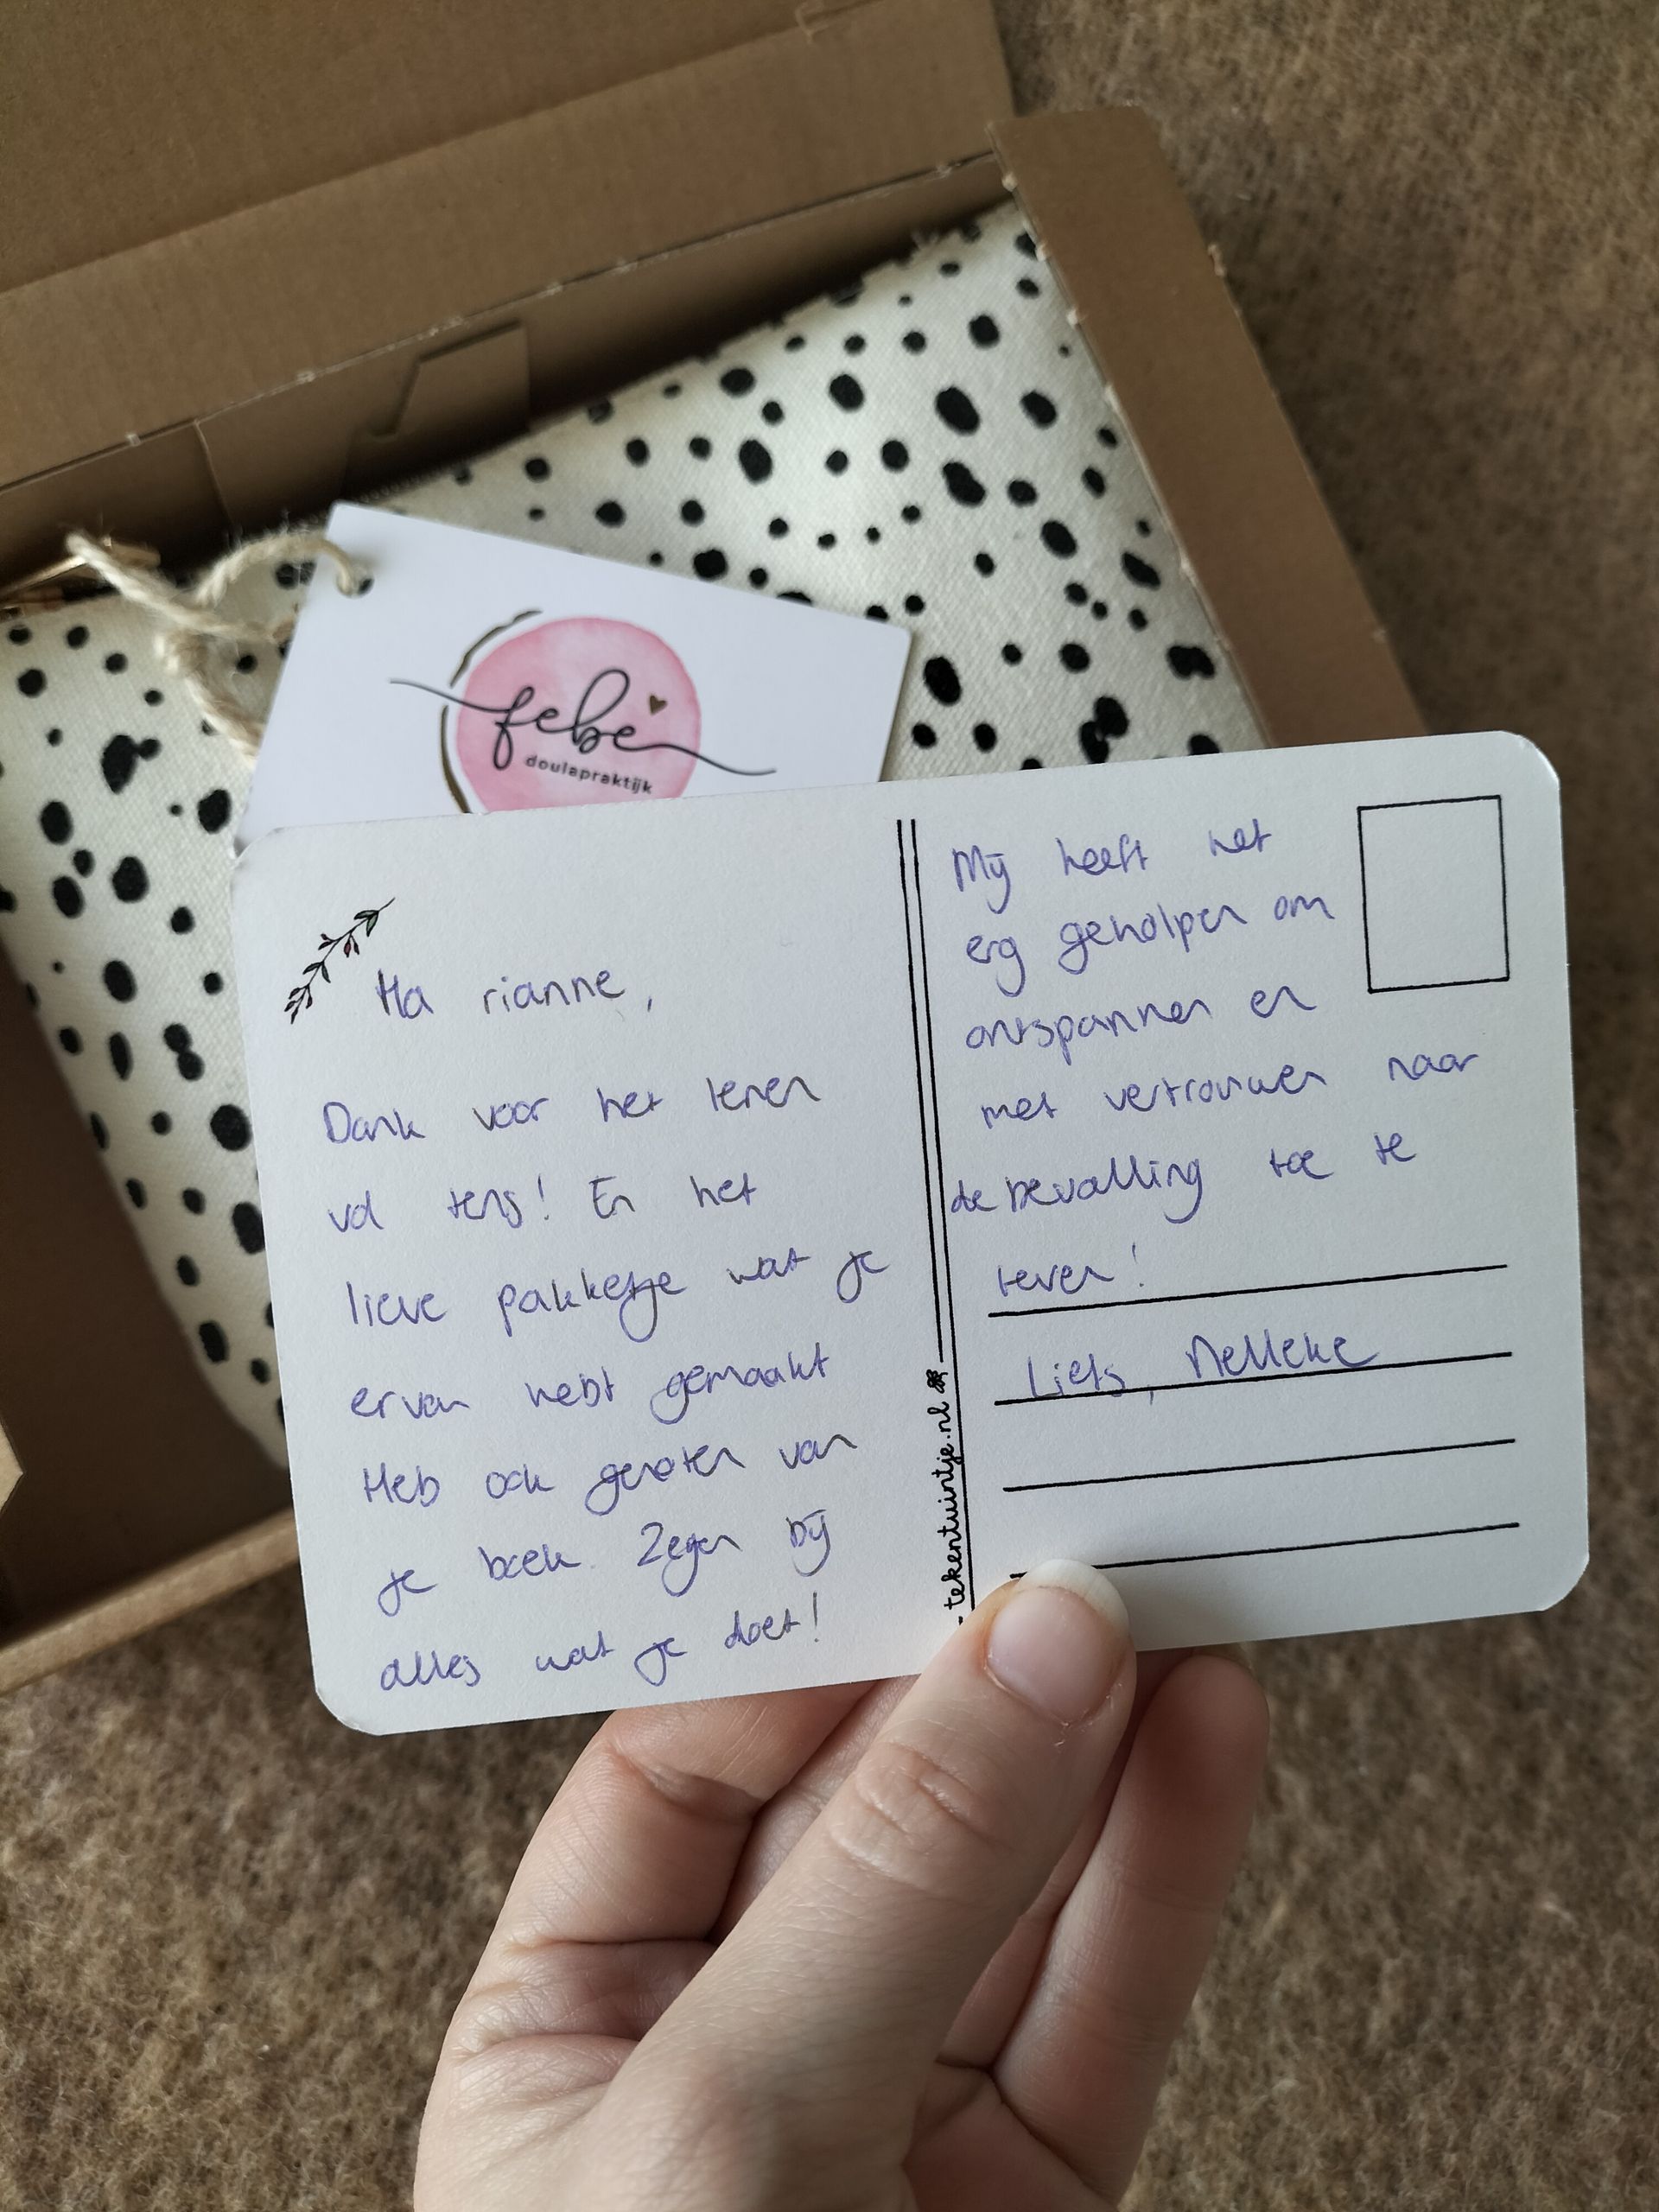 febe
doulapraktijk
Ha rianne,
Dank voor het lenen
vd tens! En het
lieve pakketje wat je
ervan hebt gemaakt
Heb ook genoten van
je boek. Zegen bij
alles wat je doet!
tekentuintje.nl
Mij heeft het
erg geholpen om
ontspannen en
met vertrouwen naar
de bevalling toe te
leven!
Liefs, Nelleke